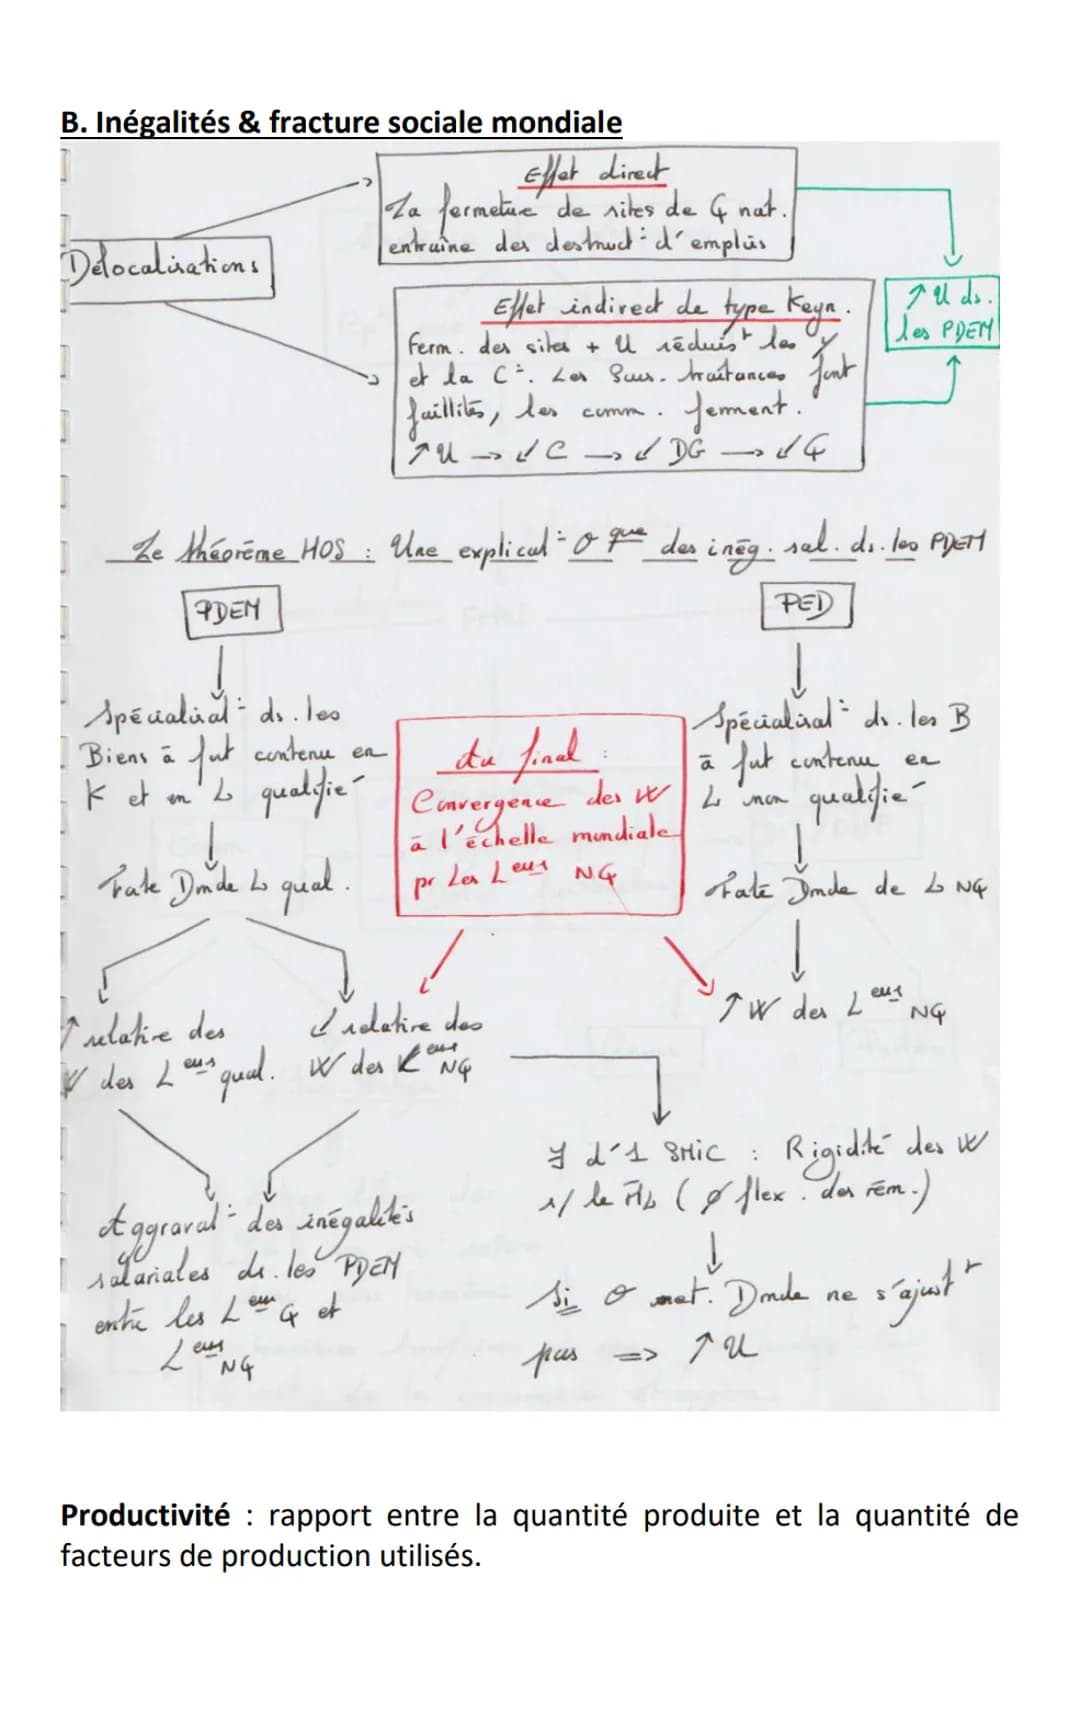 B. Inégalités & fracture sociale mondiale
Délocalisations
Effet direct
La fermeture de sites de φ nat.
entraîne des destruct° d'emplois
Effet indirect de type Keyn.
Ferm. des sites + U réduis^t les Y
et la C°. Les Sous-traitances font
faillites, les comm. ferment.
↑U → ↙C → ↙DG → ↙φ
↑U ds.
les PDEM
Le théorème HOS : Une explicat° θ que des inég. sal. ds. les PDEM
PDEM
Spécialisat° ds. les
Biens à fort contenu en
K et en L qualifié
Forte Dmde L qual.
↑ relative des
W des L^eurs qual.
↙ relative des
W des L^eurs NQ
Aggravat° des inégalités
salariales ds. les PDEM
entre les L^eurs Q et
L^eurs NQ
Au final :
Convergence des W
à l'échelle mondiale
pr Les L^eurs NQ
PED
Spécialisat° ds. les B
à fort contenu en
L non qualifié
Forte Dmde de L NQ
↑W des L^eurs NQ
∃ d'1 SMIC : Rigidité des W
s/ le M^L (Ø flex. des rém.)
Si θ et Dmde ne s'ajust^t
pas => ↑U
Productivité : rapport entre la quantité produite et la quantité de
facteurs de production utilisés.